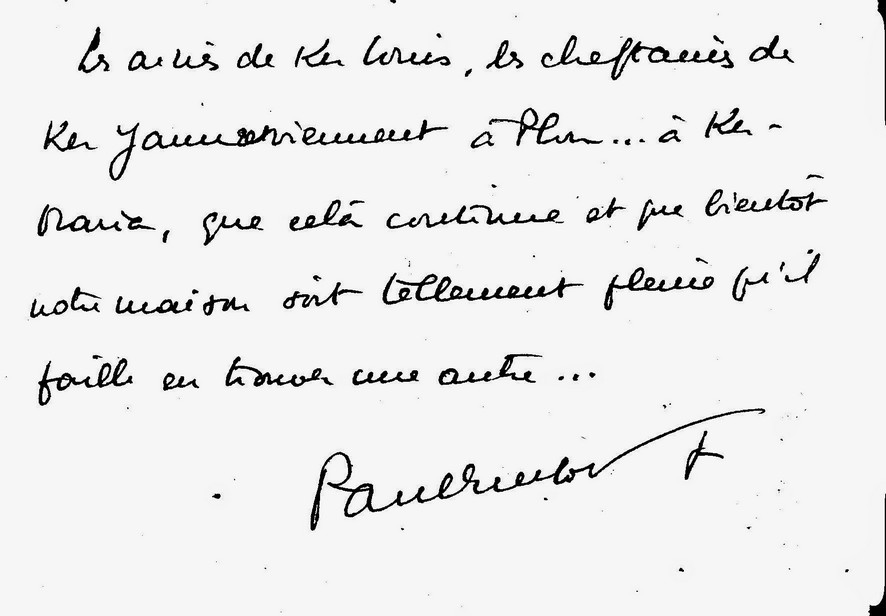 Les aînés de Ker Louis, les cheftaines de
Ker Yann reviennent à Plou... à Ker-
Maria, que cela continue et que bientôt
notre maison soit tellement pleine qu'il
faille en trouver une autre...